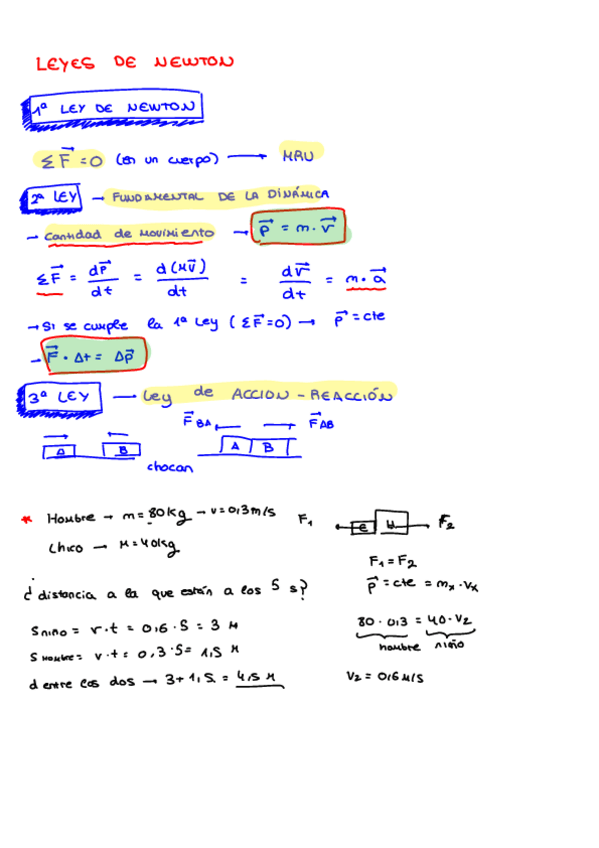 LEYES DE NEWTON
1ª LEY DE NEWTON
ΣF⃗ = 0 (en un cuerpo) → MRU
2ª LEY → FUNDAMENTAL DE LA DINÁMICA
→ Cantidad de movimiento → p⃗ = m · v⃗
ΣF⃗ = dp⃗/dt = d(mv⃗)/dt = dv⃗/dt = m · a⃗
→ Si se cumple la 1ª Ley (ΣF⃗ = 0) → p⃗ = cte
→ F⃗ · Δt = Δp⃗
3ª LEY → Ley de ACCION - REACCIÓN
F⃗BA F⃗AB
A B A B
chocan
* Hombre → m = 80 kg → v = 0,3 m/s
Chico → M = 40 kg
F₁ F₂
F₁ = F₂
p⃗ = cte = mx · vx
¿distancia a la que están a los 5 s?
S niño = v · t = 0,6 · 5 = 3 m
80 · 0,3 = 40 · v₂
hombre niño
S hombre = v · t = 0,3 · 5 = 1,5 m
d entre los dos → 3 + 1,5 = 4,5 m
V₂ = 0,6 m/s